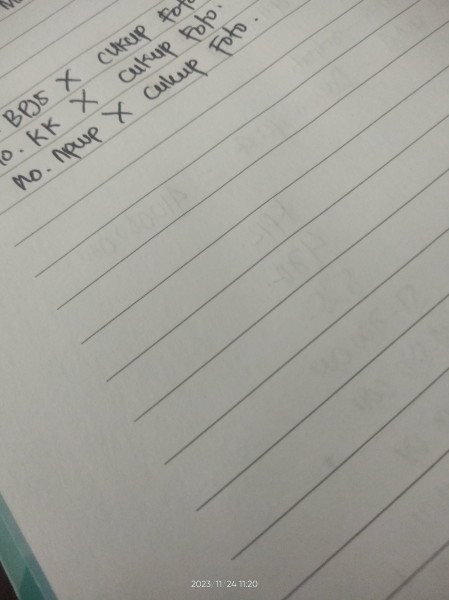 BPJS X cukup Foto
no. KK X cukup Foto.
no. npwp X cukup Foto.
2023/11/24 11:20